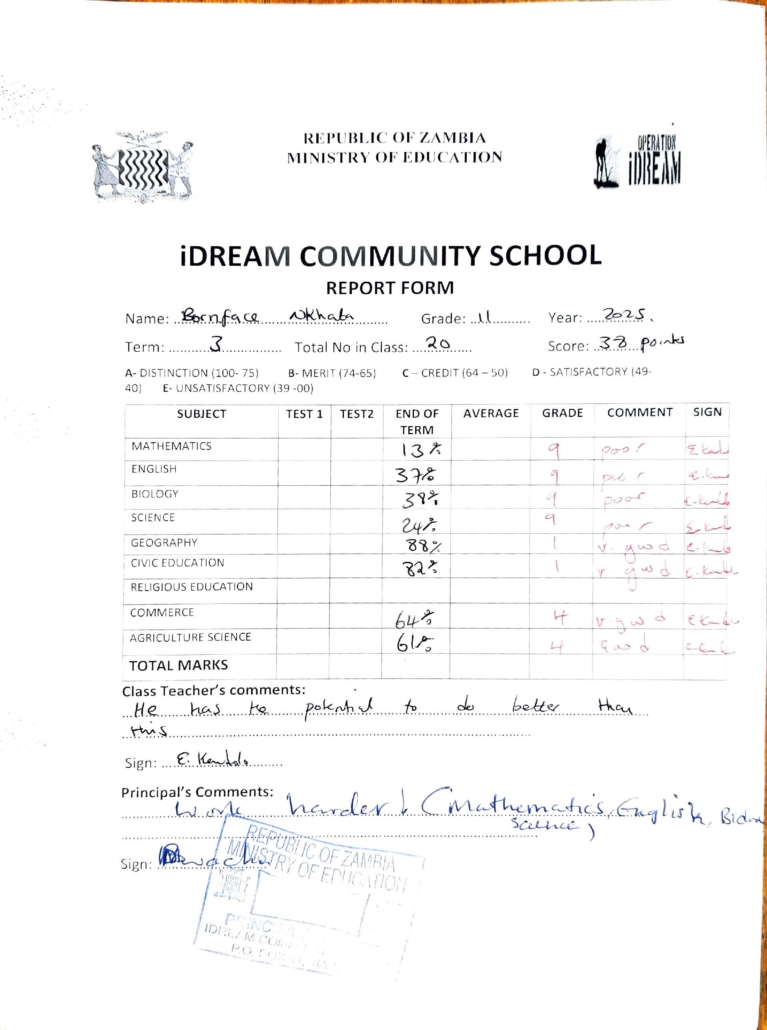 REPUBLIC OF ZAMBIA
MINISTRY OF EDUCATION
OPERATION
iDREAM
iDREAM COMMUNITY SCHOOL
REPORT FORM
Name: Bornface Nkhata Grade: 11 Year: 2025.
Term: 3 Total No in Class: 20 Score: 38 points
A- DISTINCTION (100- 75) B- MERIT (74-65) C – CREDIT (64 – 50) D - SATISFACTORY (49-
40) E- UNSATISFACTORY (39 -00)
SUBJECT TEST 1 TEST2 END OF TERM AVERAGE GRADE COMMENT SIGN
MATHEMATICS 13% 9 poor
ENGLISH 37% 9 poor
BIOLOGY 9 poor
SCIENCE 24% 9 poor
GEOGRAPHY 88% 1 v. good
CIVIC EDUCATION 82% 1 v. good
RELIGIOUS EDUCATION
COMMERCE 64% 4 v. good
AGRICULTURE SCIENCE 61% 4 Good
TOTAL MARKS
Class Teacher's comments:
He has the potential to do better than
this
Sign: E.
Principal's Comments:
Work harder! (Mathematics, English,
Science)
Sign:
REPUBLIC OF ZAMBIA
MINISTRY OF EDUCATION
IDREAM
P.O. BOX